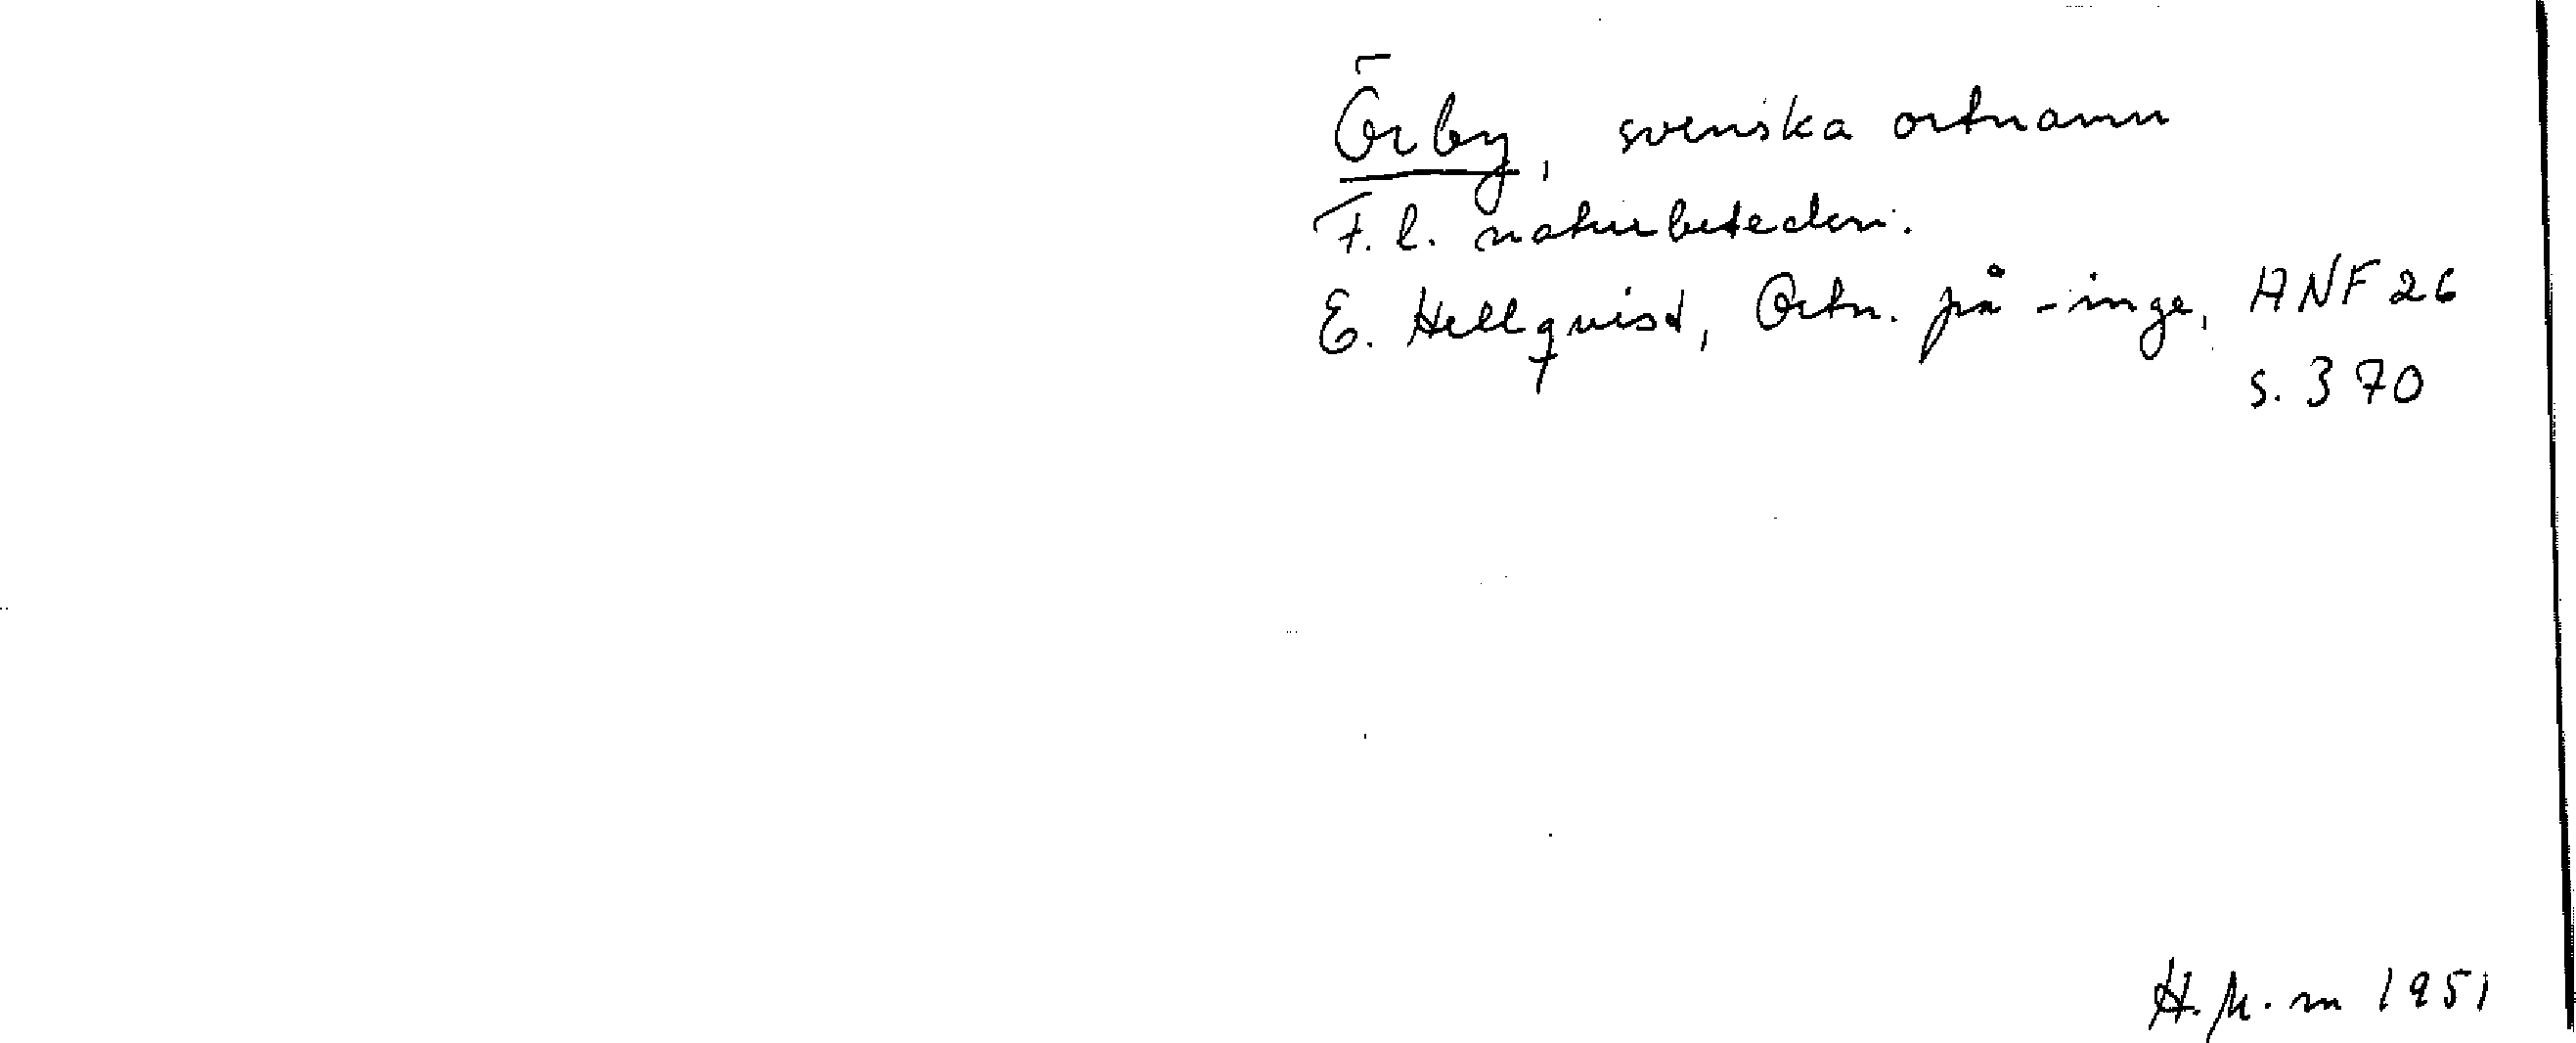 Örby, svenska ortnamn
F. l. naturbeteckn.
E. Hellquist, Ortn. på -inge, ANF 26
s. 370
H. 1951